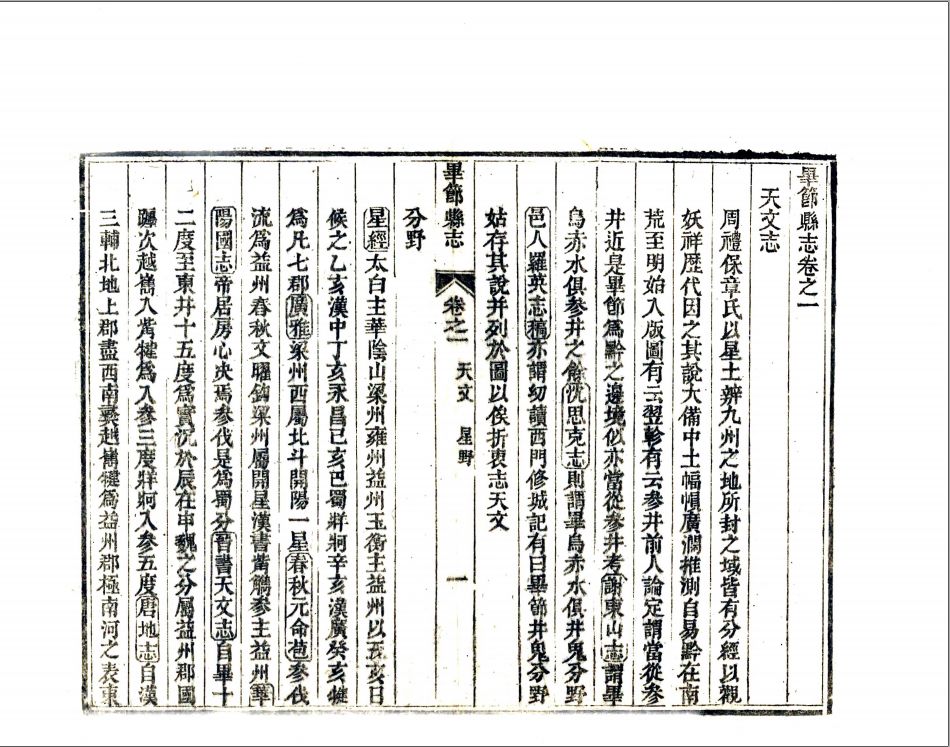 畢節縣志卷之一
天文志
周禮保章氏以星土辨九州之地所封之域皆有分經以觀
妖祥歷代因之其說大備中土幅幀廣濶推測自易黔在南
荒至明始入版圖有云翌軫有云參井前人論定謂當從參
井近是畢節爲黔之邊境似亦當從參井考謝東山志謂畢
烏赤水俱參井之餘沈思克志則謂畢烏赤水俱井鬼分野
邑人羅英志稿亦謂幼讀西門修城記有曰畢節井鬼分野
姑存其說幷列於圖以俟折衷志天文
畢節縣志 卷之一 天文 星野 一
分野
星經太白主華陰山梁州雍州益州玉衡主益州以五亥日
候之乙亥漢中丁亥永昌己亥巴蜀牂牁辛亥漢廣癸亥犍
爲凡七郡廣雅梁州西屬北斗開陽一星春秋元命苞參伐
流爲益州春秋文曜鉤梁州屬開星漢書觜觿參主益州華
陽國志帝居房心決焉參伐是爲蜀分晉書天文志自畢十
二度至東井十五度爲實沉於辰在申魏之分屬益州郡國
躔次越巂入觜犍爲入參三度牂牁入參五度唐地志自漢
三輔北地上郡盡西南夷越巂犍爲益州郡極南河之表東